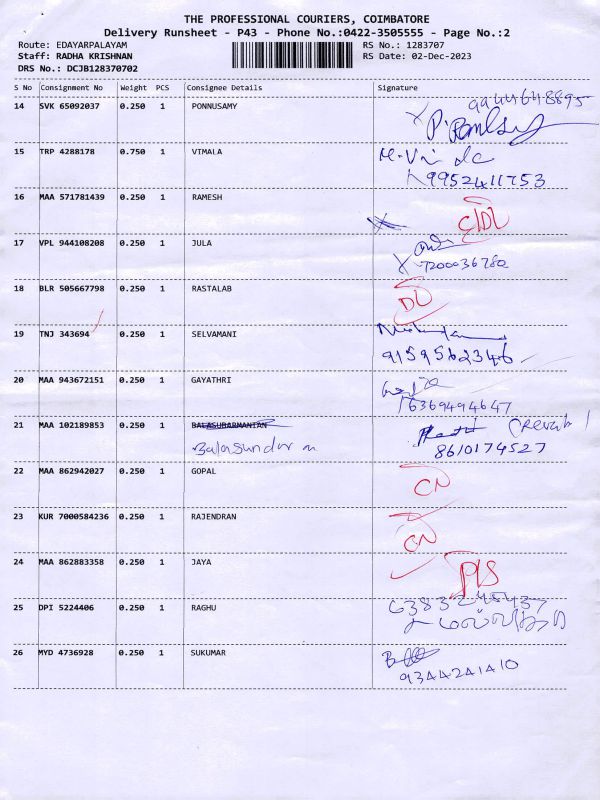 THE PROFESSIONAL COURIERS, COIMBATORE
Delivery Runsheet - P43 - Phone No.:0422-3505555 - Page No.:2
Route: EDAYARPALAYAM RS No.: 1283707
Staff: RADHA KRISHNAN RS Date: 02-Dec-2023
DRS No.: DCJB128370702
S No Consignment No Weight PCS Consignee Details Signature
9944648895
14 SVK 65092037 0.250 1 PONNUSAMY
15 TRP 4288178 0.750 1 VIMALA
9952411753
16 MAA 571781439 0.250 1 RAMESH
17 VPL 944108208 0.250 1 JULA
7200036780
18 BLR 505667798 0.250 1 RASTALAB
DL
19 TNJ 343694 0.250 1 SELVAMANI
9159562346
20 MAA 943672151 0.250 1 GAYATHRI
6369494647
21 MAA 102189853 0.250 1 BALASUBARMANIAN
Balasundaram 8610174527
22 MAA 862942027 0.250 1 GOPAL
CN
23 KUR 7000584236 0.250 1 RAJENDRAN
CN
24 MAA 862883358 0.250 1 JAYA
25 DPI 5224406 0.250 1 RAGHU
26 MYD 4736928 0.250 1 SUKUMAR
9344241410